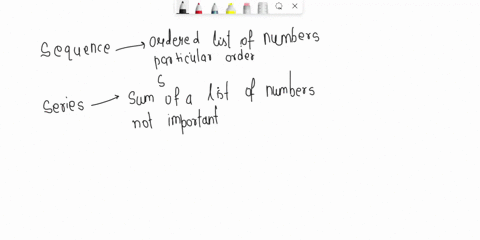 Sequence → ordered list of numbers
particular order
S
Series → Sum of a list of numbers
not important